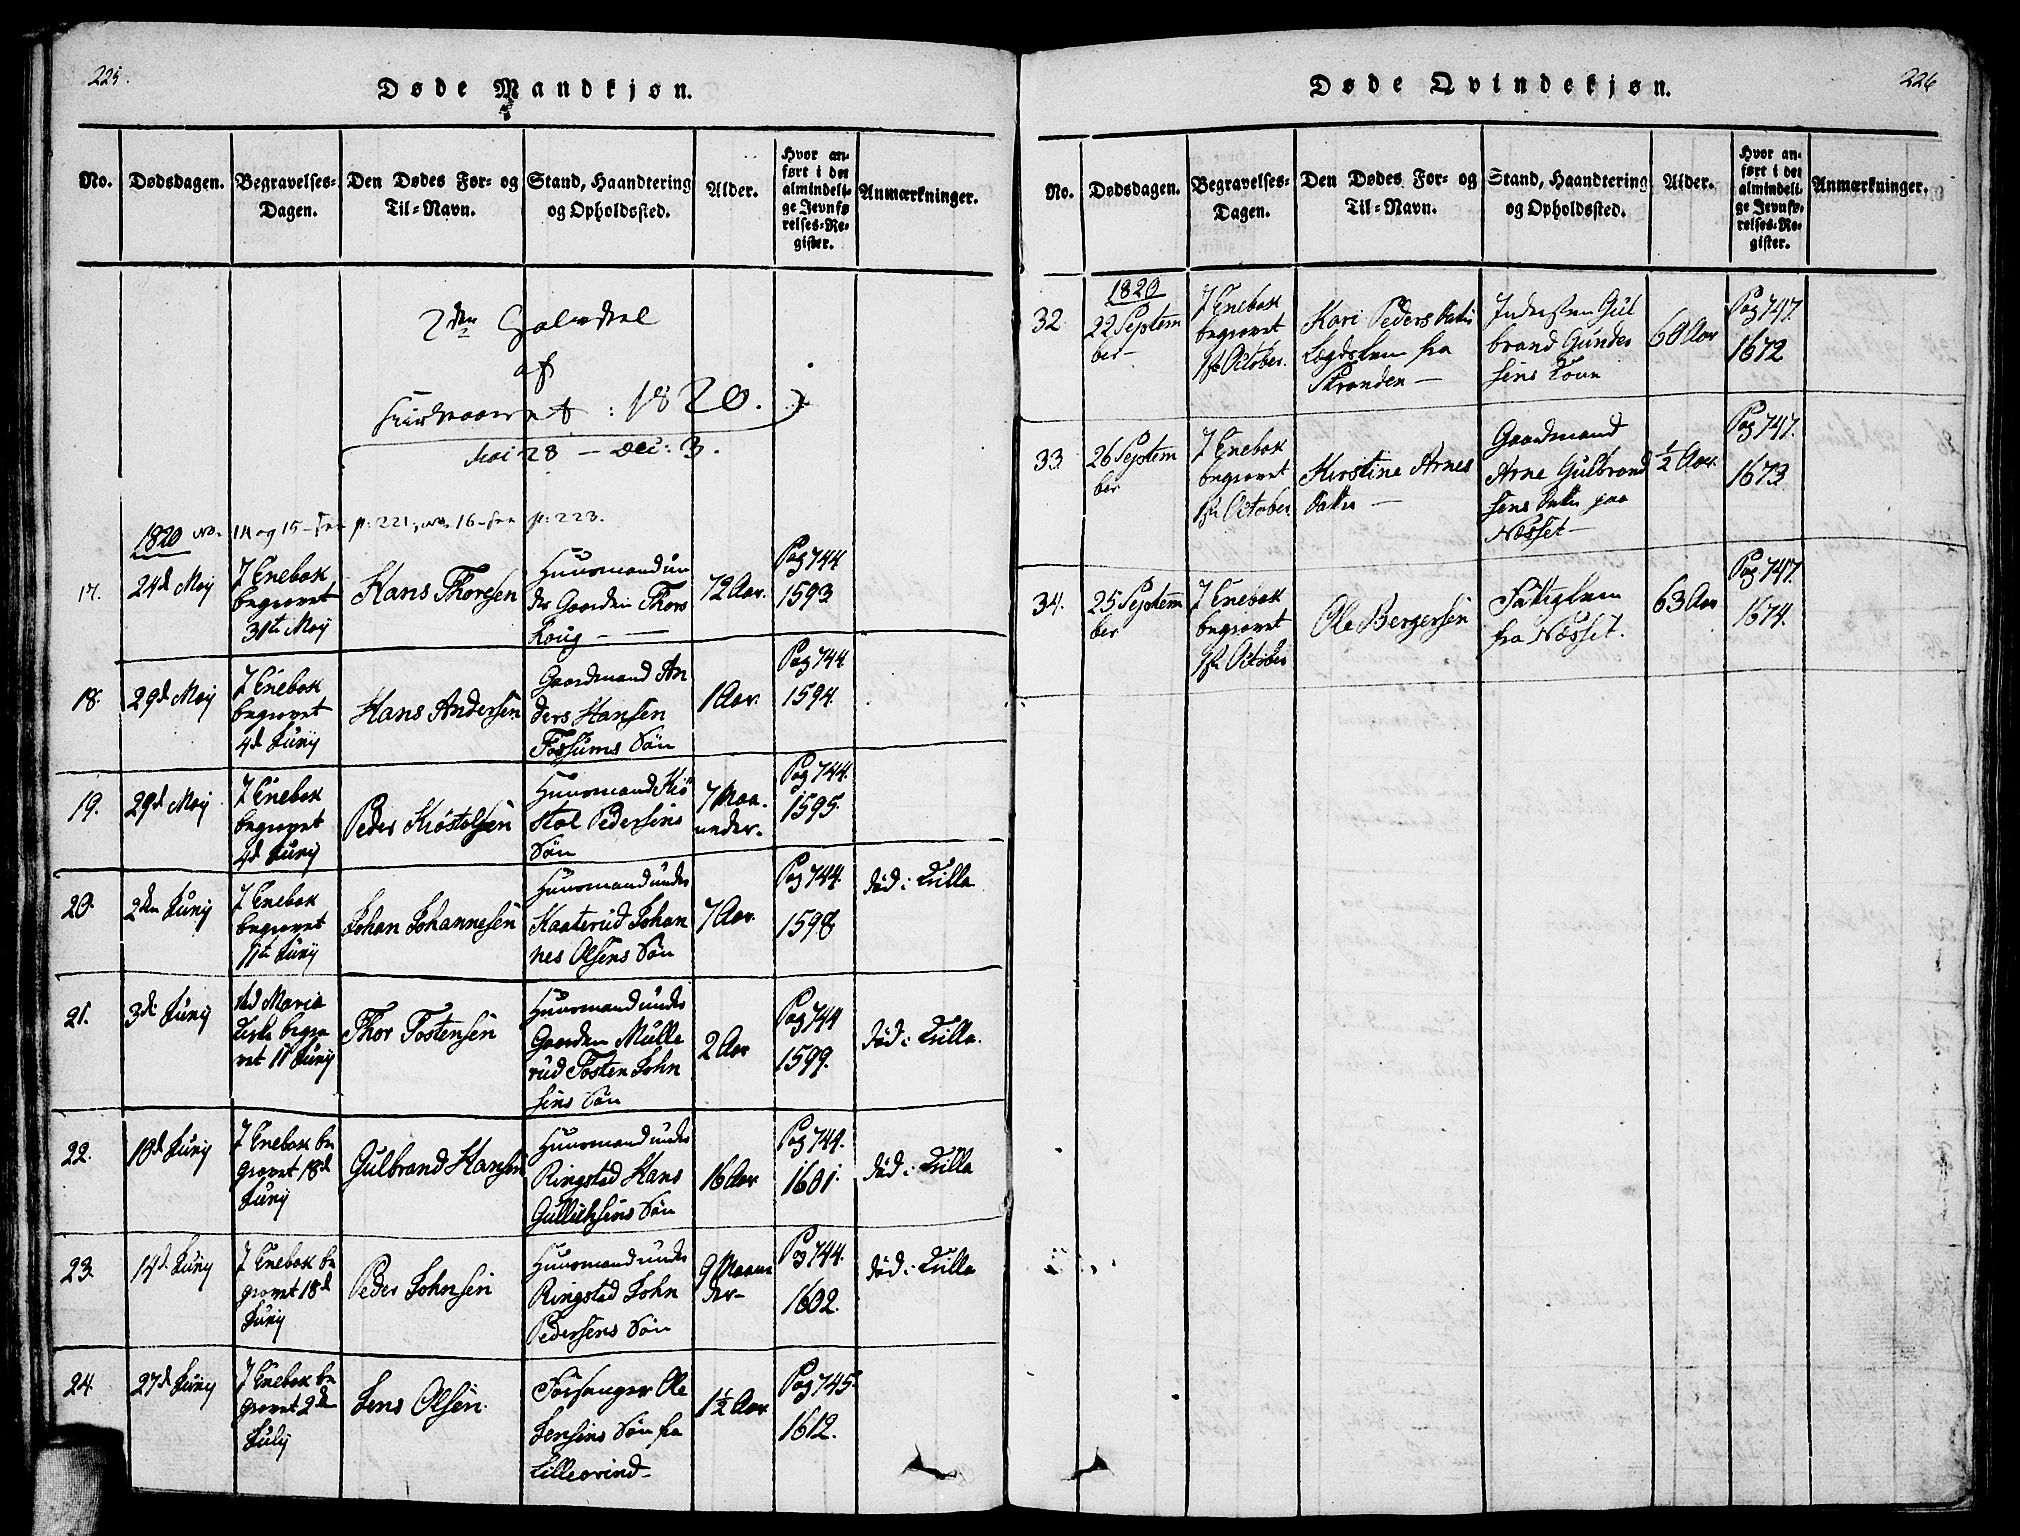 225.
Døde Mandkjøn.
No.
Dødsdagen.
Begravelses-
Dagen.
Den Dødes For- og
Til-Navn.
Stand, Haandtering
og Opholdssted.
Alder.
Hvor an-
ført i det
almindeli-
ge Jevnfø
relses-Re-
gister.
Anmærkninger.
2den Halvdeel
af
Kirkeaaret : 1820.
Mai 28 – Dec: 3.
1820 No. 14 og 15 – see p: 221, No. 16 – see p: 223.
17.
24d Maij
I Enebak
begravet
31te Maij
Hans Thoresen
Huusmand un
der Gaarden Thors
houg
72 Aar.
Pag 744
1593.
18.
29d Maij
I Enebak
begravet
4d Junij
Hans Andersen
Gaardmand An
ders Hansen
Fossums Søn
1 Aar.
Pag 744
1594.
19.
29d Maij
I Enebak
begravet
4d Junij
Peder Kiøstelsen
Huusmand Kiø
stol Pedersens
Søn
7 Maa
neder.
Pag 744.
1595.
20.
2den Junij
I Enebak
begravet
11te Junij
Johan Johannesen
Huusmand under
Kaaterud Johan
nes Olsens Søn
7 Aar.
Pag 744.
1598
død i Krilla
21.
3de Junij
ved Marie
Kirke begra
vet 11 Junij
Thor Tostensen
Huusmand under
Gaarden Mülle
rud Tosten John
sens Søn
2 Aar
Pag 744
1599.
død i Krilla.
22.
10d Junij
I Enebak be
gravet 18d
Junij
Gulbrand Hansen
Huusmand under
Ringstad Hans
Gulliksens Søn
16 Aar
Pag 744.
1601.
død i Krilla
23.
14d Junij
I Enebak be
gravet 18d
Junij
Peder Johnsen
Huusmand under
Ringstad John
Pedersens Søn
9 Maane
der
Pag 744.
1602.
død i Krilla
24.
27d Junij
I Enebak be
gravet 2den
Julij
Jens Olsen
Forsanger Ole
Jensens Søn fra
Lillestrind
1½ Aar
Pag 745.
1612.
226
Døde Qvindekjøn.
No.
Dødsdagen.
Begravelses-
Dagen.
Den Dødes For- og
Til-Navn.
Stand, Haandtering
og Opholdssted.
Alder.
Hvor an-
ført i det
almindeli-
ge Jevnfø-
relses-Re-
gister.
Anmærkninger.
1820
32.
22 Septem
ber
I Enebak
begravet
1ste October.
Kari Peders Datter
Lægdslem fra
Stranden
Indersten Gul
brand Gunder
sens Kone
60 Aar
Pag 747.
1672
33.
26 Septem
ber
I Enebak
begravet
1ste October
Kirstine Arnes
Datter
Gaardmand
Arne Gulbrand
sens Datter paa
Næsset
½ Aar.
Pag 747.
1673
34.
25 Septem
ber
I Enebak
begravet
1ste October
Ole Bergersen
Fattiglem
fra Næsset.
63 Aar
Pag 747.
1674.